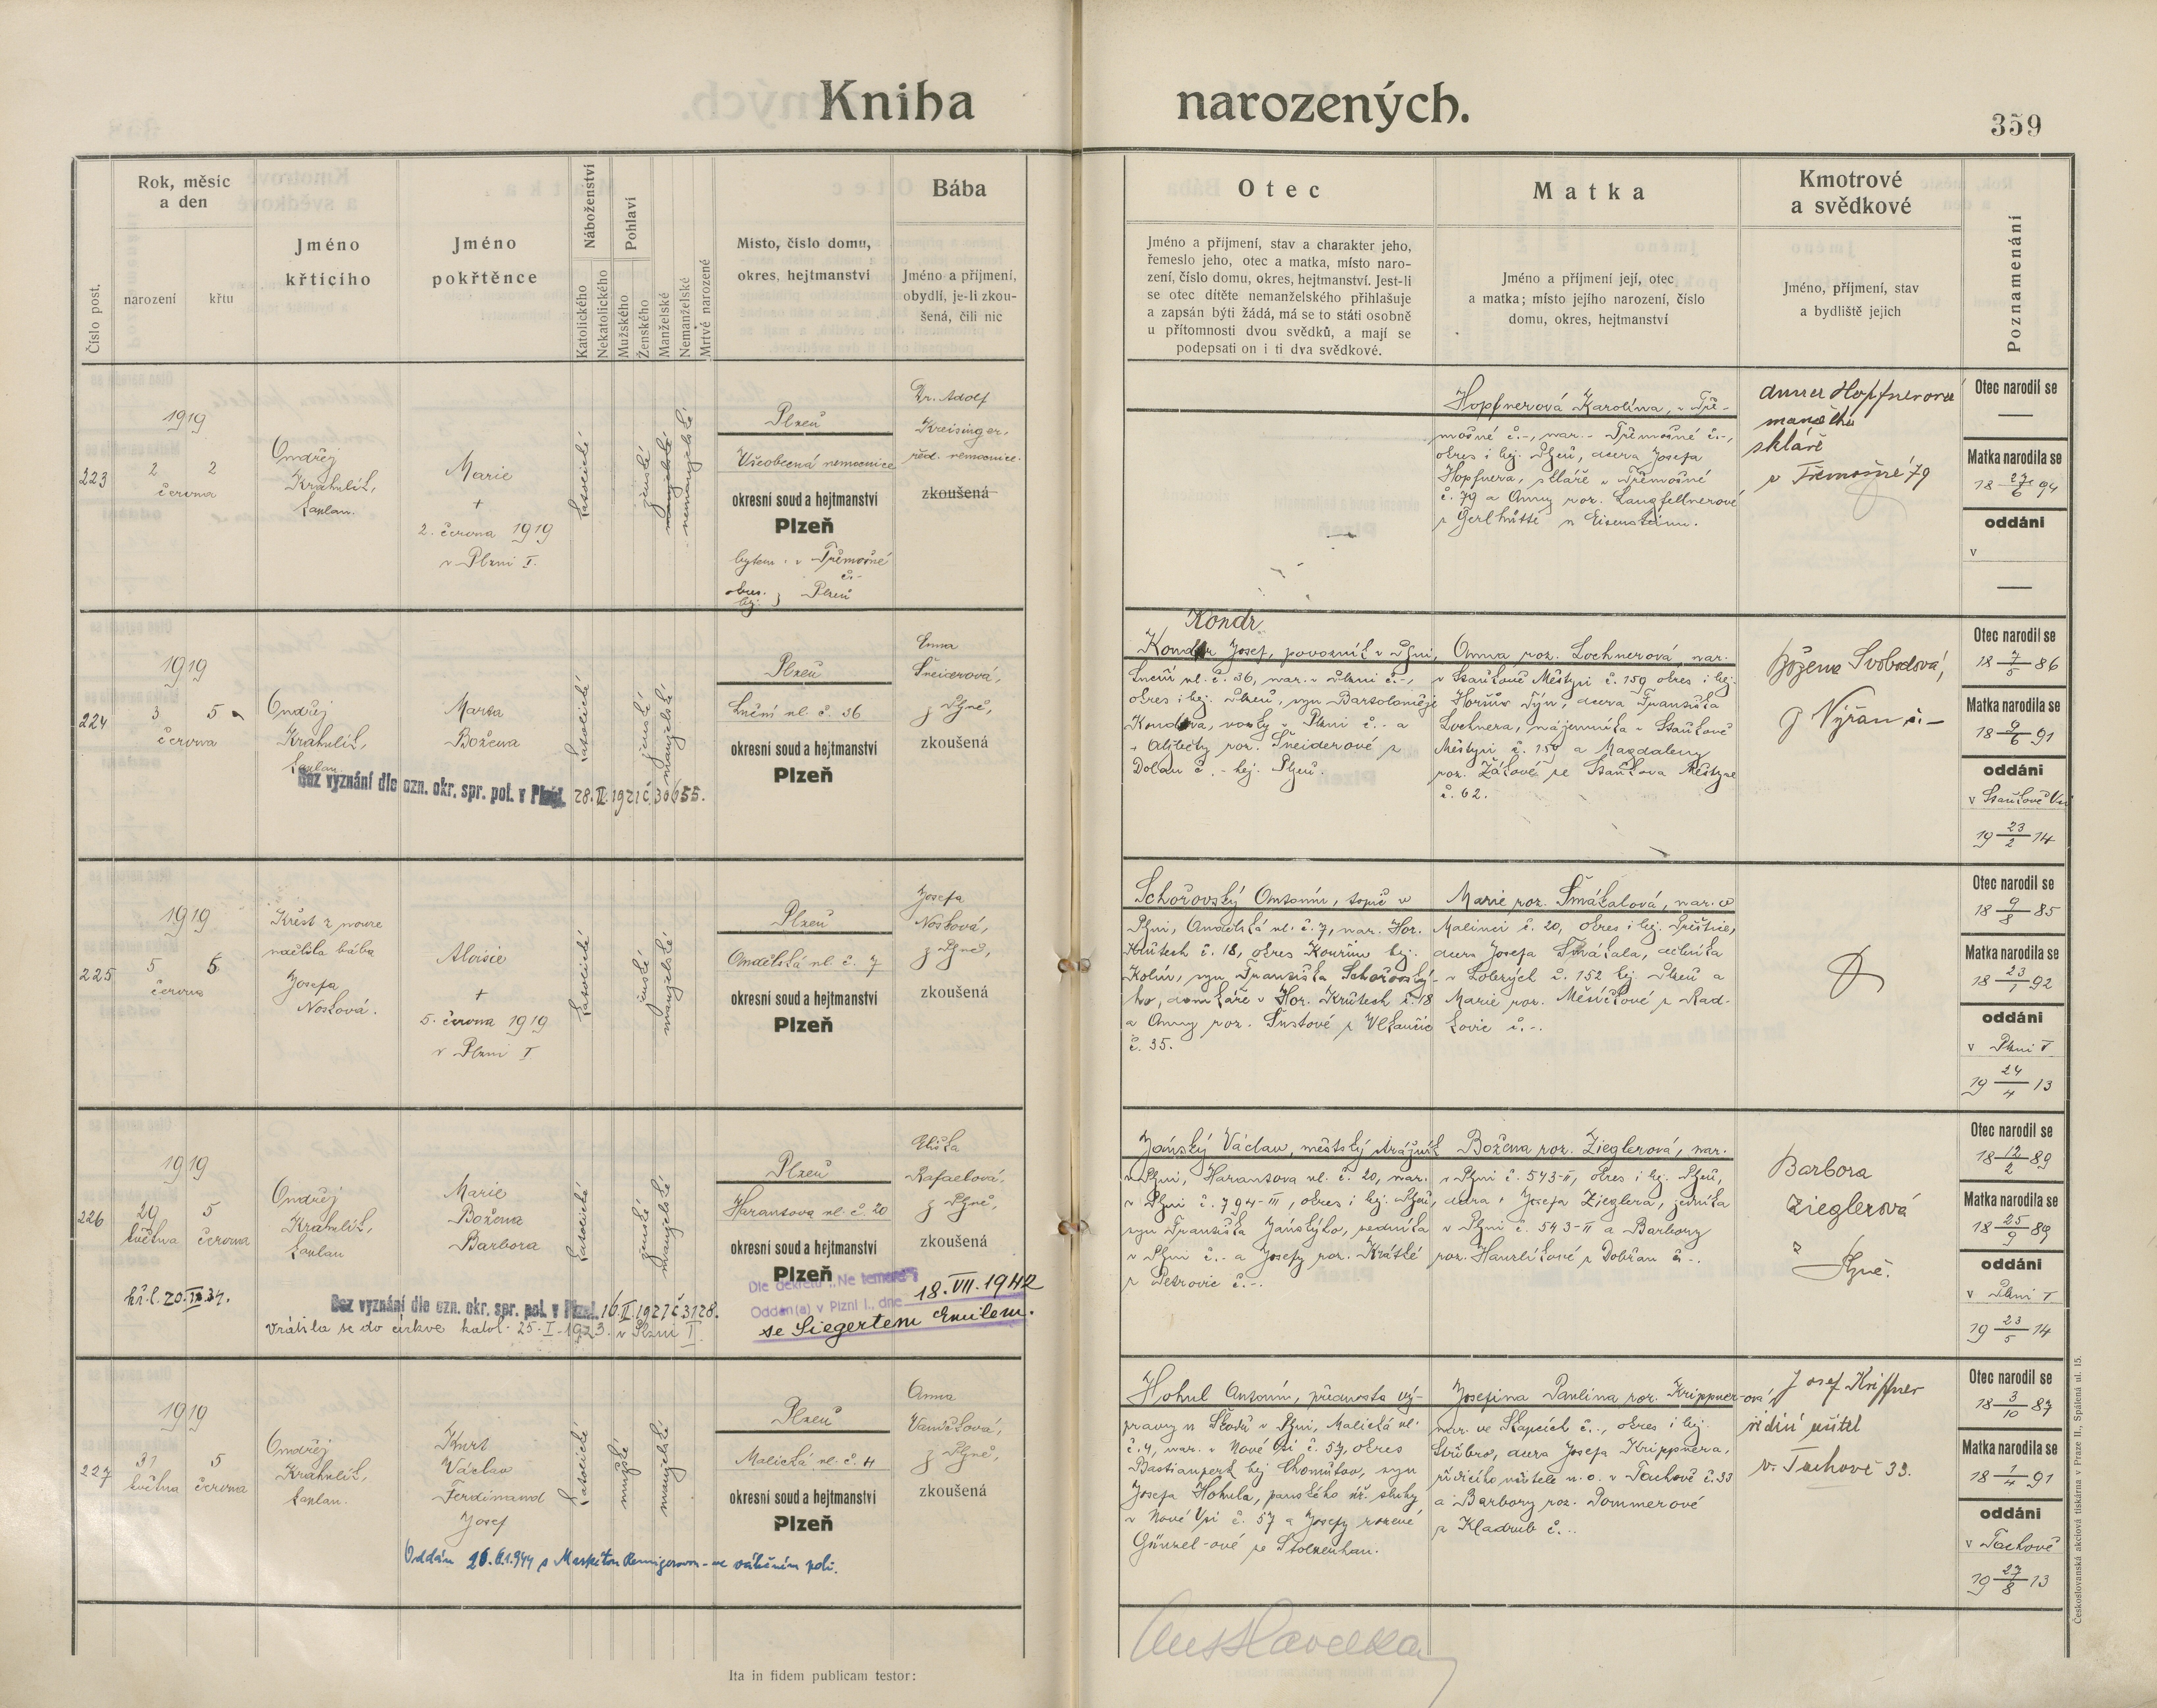 Kniha narozených.
359
Číslo post.
Rok, měsíc
a den
narození
křtu
Jméno
křtícího
Jméno
pokřtěnce
Náboženství
Katolického
Nekatolického
Pohlaví
Mužského
Ženského
Manželské
Nemanželské
Mrtvě narozené
Místo, číslo domu,
okres, hejtmanství
Bába
Jméno a příjmení,
obydlí, je-li zkou-
šená, čili nic
Otec
Jméno a příjmení, stav a charakter jeho,
řemeslo jeho, otec a matka, místo naro-
zení, číslo domu, okres, hejtmanství. Jest-li
se otec dítěte nemanželského přihlašuje
a zapsán býti žádá, má se to státi osobně
u přítomnosti dvou svědků, a mají se
podepsati on i ti dva svědkové.
Matka
Jméno a příjmení její, otec
a matka; místo jejího narození, číslo
domu, okres, hejtmanství
Kmotrové
a svědkové
Jméno, příjmení, stav
a bydliště jejich
Poznamenání
223
1919
2 2
června
Ondřej
Krahulík,
kaplan.
Marie
+
2. června 1919
v Plzni I.
katolické
ženské
manželské
nemanželské
Plzeň
Všeobecná nemocnice
okresní soud a hejtmanství
Plzeň
bytem v Třemošné
č.-
okres.
hej. } Plzeň
Dr. Adolf
Kreisinger,
řed. nemocnice.
zkoušená
Hopfnerová Karolína, v Tře-
mošné č.-, nar. v Třemošné č.-,
okres i hej. Plzeň, dcera Josefa
Hopfnera, skláře v Třemošné
č. 79 a Anny roz. Langfellnerové
z Gerlhütte u Eisensteinu.
Anna Hopfnerová
manželka
skláře
v Třemošné 79
Otec narodil se
—
Matka narodila se
18 27/6 94
oddáni
v
—
224
1919
3 5
června
Ondřej
Krahulík,
kaplan.
Marta
Božena
katolické
ženské
manželské
Bez vyznání dle ozn. okr. spr. pol. v Plzni. 28.II.1921 č. 30655.
Plzeň
Luční ul. č. 36
okresní soud a hejtmanství
Plzeň
Anna
Šneiderová,
z Plzně,
zkoušená
Kondr
Josef, povozník v Plzni,
Luční ul. č. 36, nar. v Plzni č.-,
okres i hej. Plzeň, syn Bartoloměje
Kondra, v Plzni č.- a
Alžběty roz. Šneiderové z
Dolan č.- hej. Plzeň.
Anna roz. Lochnerová, nar.
v Staňkově Městysi č. 159 okres i hej.
Horšův Týn, dcera Františka
Lochnera, nájemníka v Staňkově
Městysi č. 159 a Magdaleny
roz. Žákové ze Staňkova Městyse
č. 62.
Božena Svobodová,
z Nýřan č.-
Otec narodil se
18 7/5 86
Matka narodila se
18 9/6 91
oddáni
v Staňkově Vsi
19 23/2 14
225
1919
5 5
června
Křest z nouze
udělila bába
Josefa
Nosková.
Aloisie
+
5. června 1919
v Plzni I
katolické
ženské
manželské
Plzeň
Andělská ul. č. 7
okresní soud a hejtmanství
Plzeň
Josefa
Nosková,
z Plzně,
zkoušená
Schořovský Antonín, topič v
Plzni, Andělská ul. č. 7, nar. Hor.
Krůtech č. 18, okres Kouřim hej.
Kolín, syn Františka Schořovský-
ho, domkáře v Hor. Krůtech č. 18
a Anny roz. Šustové z Vlkančic
č. 35.
Marie roz. Smákalová, nar. v
Malinci č. 20, okres i hej. Přeštice,
dcera Josefa Smákala, dělníka
v Lobezých č. 152 hej. Plzeň a
Marie roz. Měsíčkové z Rad-
kovic č.-.
Otec narodil se
18 9/8 85
Matka narodila se
18 23/1 92
oddáni
v Plzni I
19 24/4 13
226
1919
29 5
května června
kř. l. 20.II.34.
Ondřej
Krahulík,
kaplan
Marie
Božena
Barbora
katolické
ženské
manželské
Bez vyznání dle ozn. okr. spr. pol. v Plzni. 16.II.1921 č. 3128.
Vrátila se do církve katol. 25.I.1923. v Plzni I.
Plzeň
Harantova ul. č. 20
okresní soud a hejtmanství
Plzeň
Dle dekretu „Ne temere“
Oddán(a) v Plzni I., dne 18.VII.1942
se Siegertem Emilem.
Eliška
Rafaelová,
z Plzně,
zkoušená
Jánský Václav, městský strážník
v Plzni, Harantova ul. č. 20, nar.
v Plzni č. 794-III, okres i hej. Plzeň,
syn Františka Jánskýho,
v Plzni č.- a Josefy roz. Krátké
z Petrovic č.-.
Božena roz. Zieglerová, nar.
v Plzni č. 543-II, okres i hej. Plzeň,
dcera Josefa Zieglera,
v Plzni č. 543-II a Barbory
roz. Havlíkové z Dobřan č.-.
Barbora
Zieglerová
z
Plzně.
Otec narodil se
18 12/2 89
Matka narodila se
18 25/9 89
oddáni
v Plzni I
19 23/5 14
227
1919
31 5
května června
Ondřej
Krahulík,
kaplan.
Kurt
Václav
Ferdinand
Josef
katolické
mužské
manželské
Oddán 26.6.1944 s ve válečném poli.
Plzeň
Malická ul. č. 4
okresní soud a hejtmanství
Plzeň
Anna
Vaníčková,
z Plzně,
zkoušená
Hohul Antonín, přednosta vý-
pravny u Škodů v Plzni, Malická ul.
č. 4, nar. v Nové Vsi č. 57, okres
Bastianperk hej. Chomútov, syn
Josefa Hohula, panského sluhy
v Nové Vsi č. 57 a Josefy rozené
Günzel-ové ze Stolzenhan.
Josefina Paulina roz. Krippner-ová,
nar. ve Skapcích č.-, okres i hej.
Stříbro, dcera Josefa Krippnera,
řídícího učitele n. o. v Tachově č. 33
a Barbory roz. Pommerové
z Kladrub č.-.
Josef Krippner
řídící učitel
v. Tachově 33.
Otec narodil se
18 3/10 87
Matka narodila se
18 1/4 91
oddáni
v Tachově
19 27/8 13
Ita in fidem publicam testor:
Československá akciová tiskárna v Praze II., Spálená ul. 15.